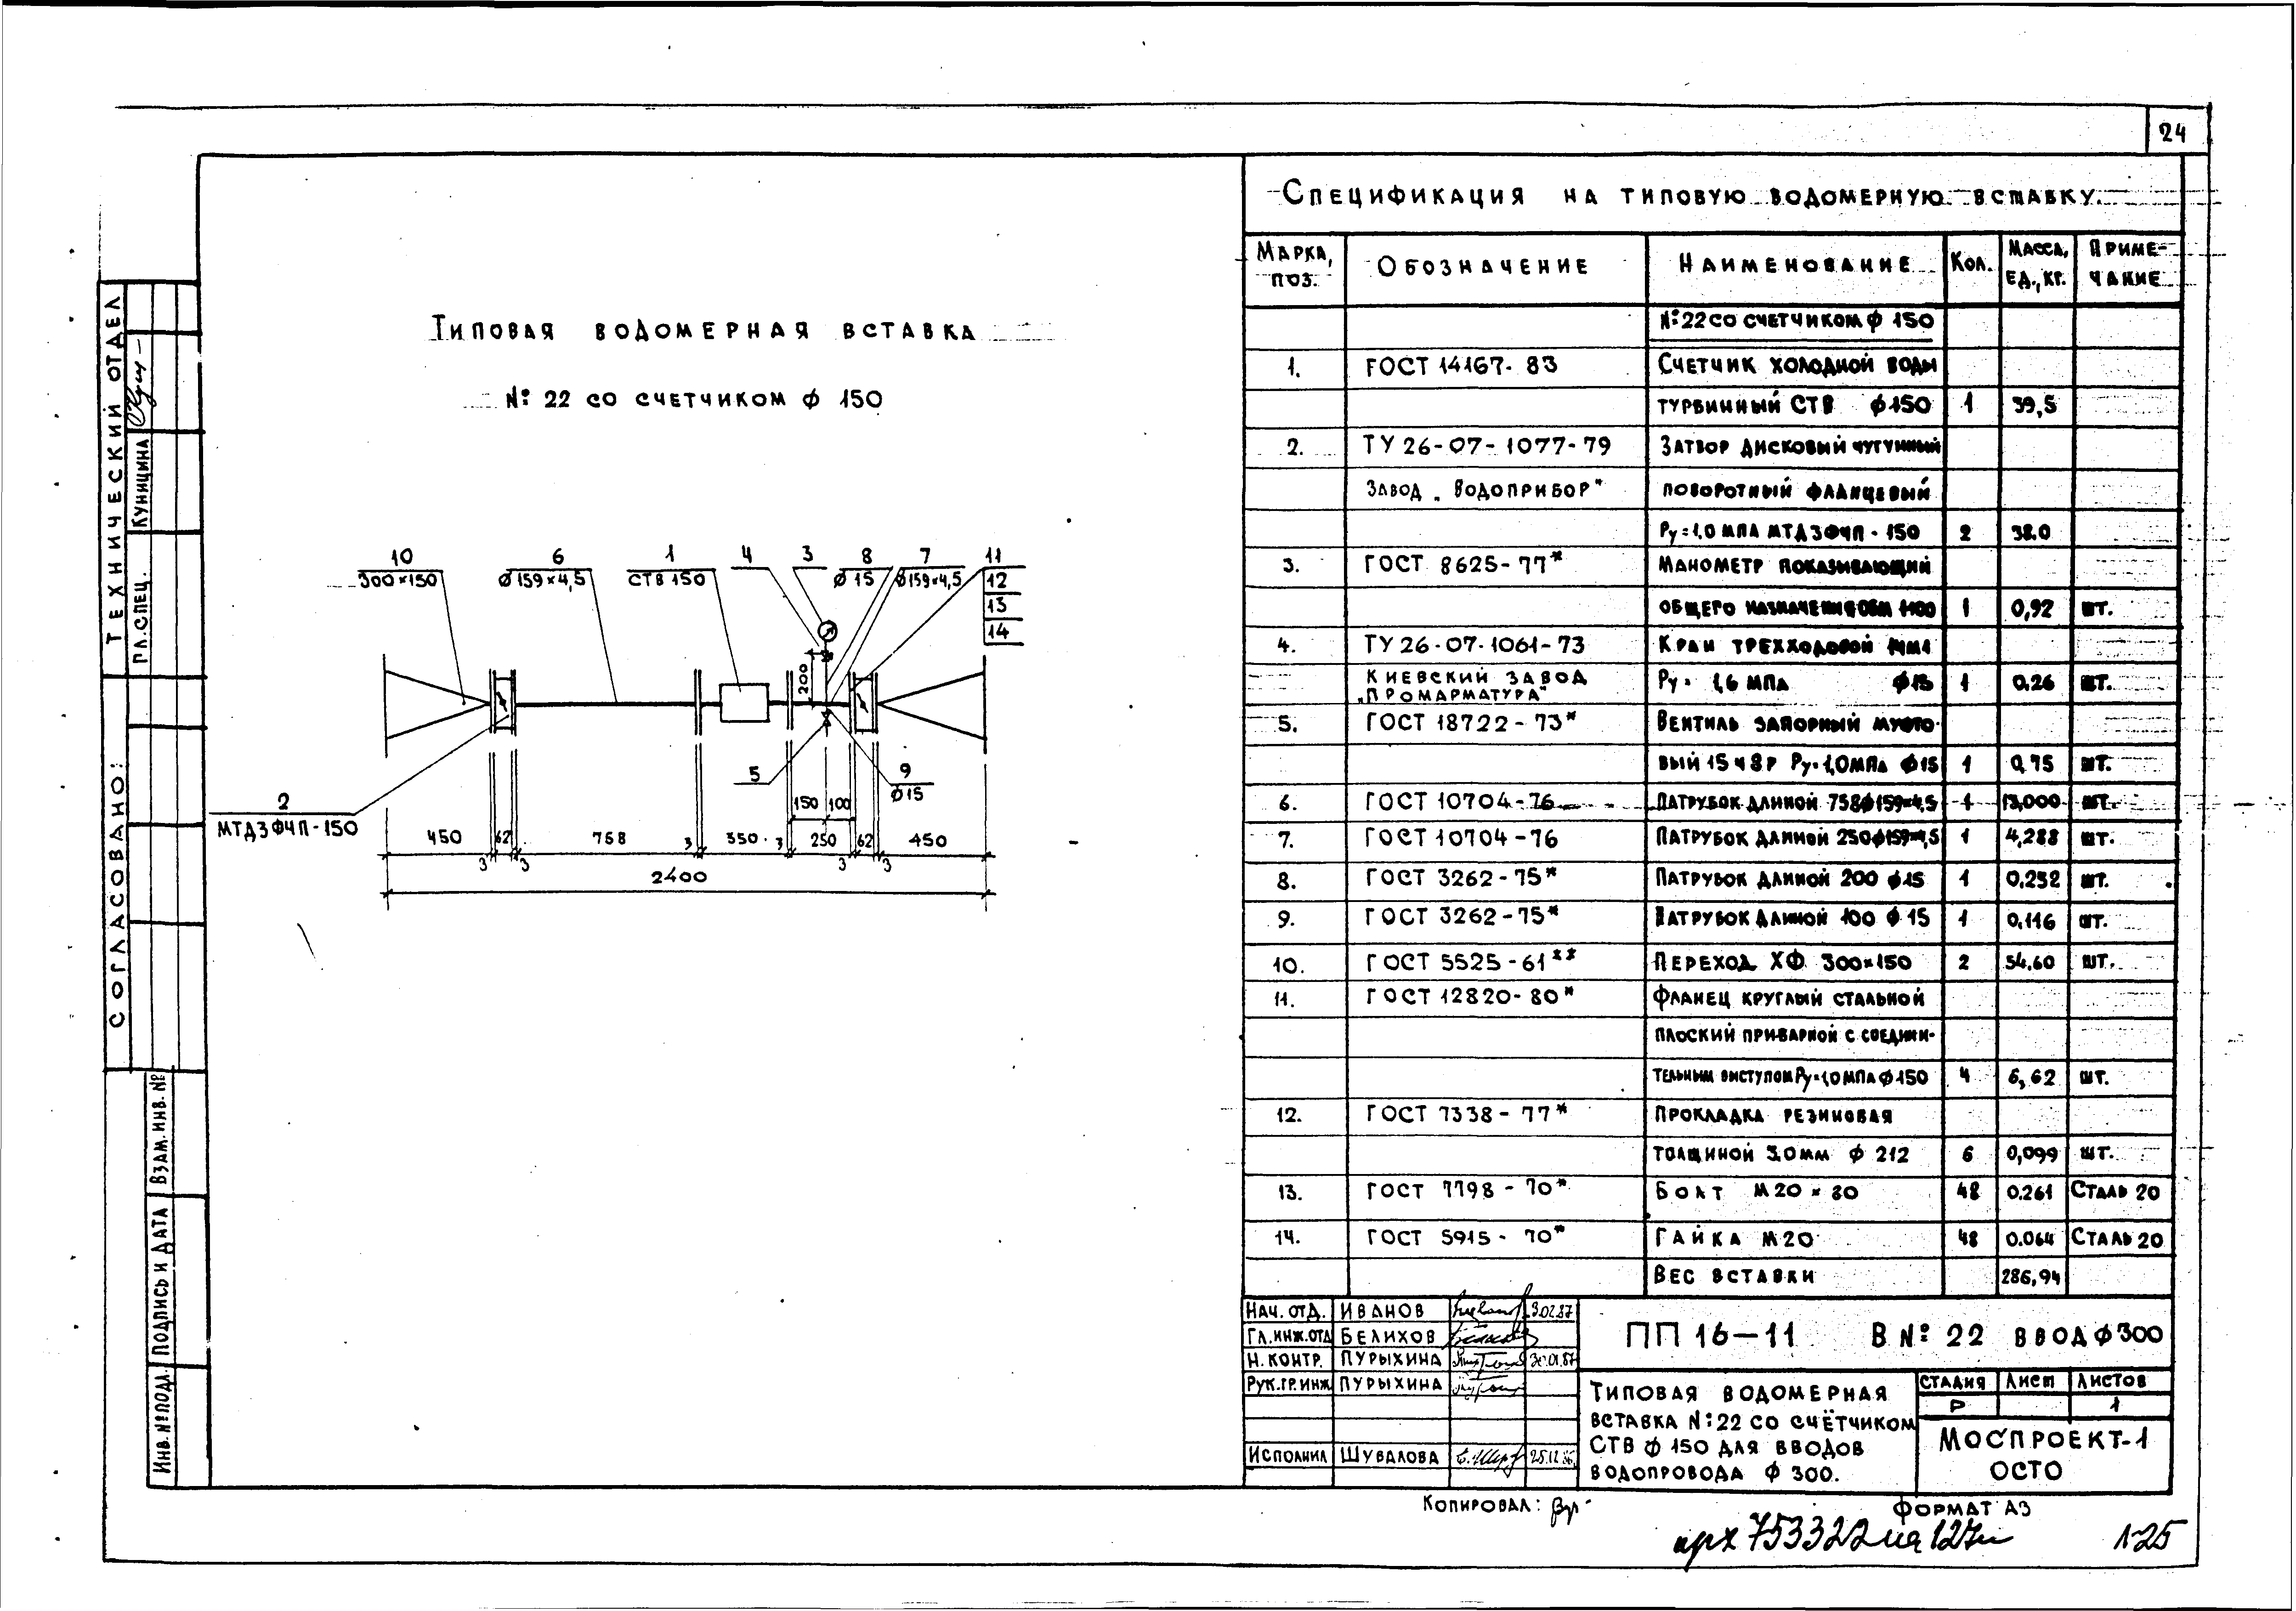 24
Типовая водомерная вставка
№ 22 со счетчиком ф 150
10
300×150
6
ф159×4,5
1
СТВ 150
4
3
8
ф 15
7
ф159×4,5
11
12
13
14
200
5
9
ф15
2
МТДЗФЧП-150
150 100
450 62 758 3 350 3 250 62 450
3 3 3 3
2400
Технический отдел
Гл. спец. Куницина
Согласовано:
Взам. инв. №
Подпись и дата
Инв. № подл.
Спецификация на типовую водомерную вставку.
Марка, поз. Обозначение Наименование Кол. Масса, ед., кг. Примечание
№22 со счетчиком ф 150
1. ГОСТ 14167-83 Счетчик холодной воды
турбинный СТВ ф150 1 39,5
2. ТУ 26-07-1077-79 Затвор дисковый чугунный
Завод „Водоприбор" поворотный фланцевый
Ру=1,0 МПа МТДЗФЧП-150 2 38.0
3. ГОСТ 8625-77* Манометр показывающий
общего назначения ОБМ 1-100 1 0,92 шт.
4. ТУ 26-07-1061-73 Кран трехходовой 14М1
Киевский завод „Промарматура" Ру= 1,6 МПа ф15 1 0.26 шт.
5. ГОСТ 18722-73* Вентиль запорный муфто-
вый 15ч8р Ру=1,0МПа ф15 1 0,75 шт.
6. ГОСТ 10704-76 Патрубок длиной 758ф159×4,5 1 13,000 шт.
7. ГОСТ 10704-76 Патрубок длиной 250ф159×4,5 1 4,288 шт.
8. ГОСТ 3262-75* Патрубок длиной 200 ф15 1 0,232 шт.
9. ГОСТ 3262-75* Патрубок длиной 100 ф 15 1 0,116 шт.
10. ГОСТ 5525-61** Переход ХФ 300×150 2 54,60 шт.
11. ГОСТ 12820-80* Фланец круглый стальной
плоский приварной с соедини-
тельным выступом Ру=1,0МПа ф150 4 6,62 шт.
12. ГОСТ 7338-77* Прокладка резиновая
толщиной 3,0мм ф 212 6 0,099 шт.
13. ГОСТ 7798-70* Болт М20×80 48 0.261 Сталь 20
14. ГОСТ 5915-70* Гайка М20 48 0.064 Сталь 20
Вес вставки 286,94
Нач. отд. Иванов 3.02.87
Гл. инж. отд Белихов
Н. контр. Пурыхина 30.01.87
Рук. гр. инж Пурыхина
Исполнил Шувалова 25.12.86
ПП 16-11 В № 22 ввод ф 300
Типовая водомерная
вставка №22 со счётчиком
СТВ ф 150 для вводов
водопровода ф 300.
Стадия Лист Листов
Р 1
Моспроект-1
ОСТО
Копировал:
Формат А3
арх 753322 на 127л
1-25